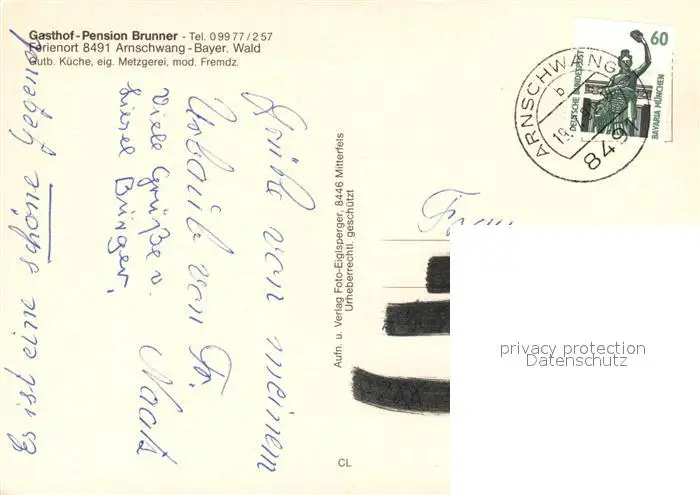 Gasthof-Pension Brunner - Tel. 09977/257
Ferienort 8491 Arnschwang-Bayer. Wald
Gutb. Küche, eig. Metzgerei, mod. Fremdz.
Grüße von meinem
Urlaub von Fr.
Viele Grüße v.
Liesel Bürger.
Es ist eine schöne Gegend
Aufn. u. Verlag Foto-Eiglsperger, 8446 Mitterfels
Urheberrechtl. geschützt
CL
60
DEUTSCHE BUNDESPOST
BAVARIA MÜNCHEN
ARNSCHWANG
b
8491
Frau
privacy protection
Datenschutz